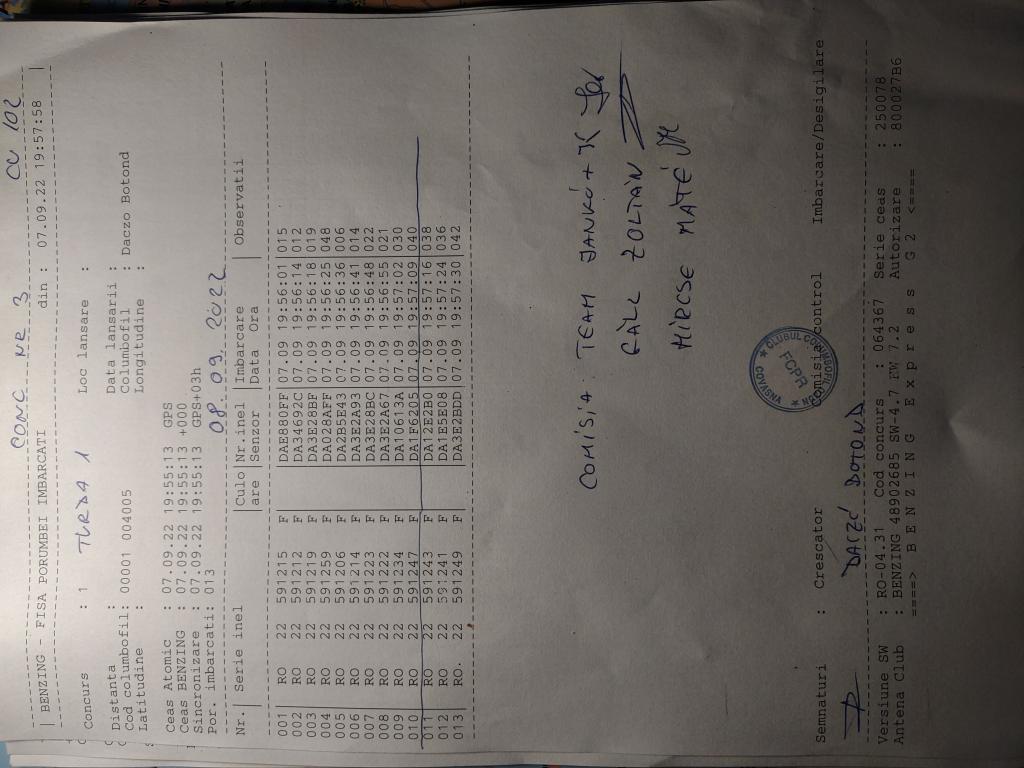 CONC NR 3 CC 102
| BENZING - FISA PORUMBEI IMBARCATI din : 07.09.22 19:57:58 |
Concurs : 1 TURDA 1 Loc lansare :
Distanta : Data lansarii :
Cod columbofil: 00001 004005 Columbofil : Daczo Botond
Latitudine : Longitudine :
Ceas Atomic : 07.09.22 19:55:13 GPS
Ceas BENZING : 07.09.22 19:55:13 +000
Sincronizare : 07.09.22 19:55:13 GPS+03h
Por. imbarcati: 013 08.09.2022
Nr.| Serie inel |Culo|Nr.inel |Imbarcare | Observatii
|are |Senzor |Data Ora |
001| RO 22 591215 F | |DAE880FF|07.09 19:56:01|015
002| RO 22 591212 F | |DA34692C|07.09 19:56:14|012
003| RO 22 591219 F | |DA3E2BBF|07.09 19:56:18|019
004| RO 22 591259 F | |DA028AFF|07.09 19:56:25|048
005| RO 22 591206 F | |DA2B5E43|07.09 19:56:36|006
006| RO 22 591214 F | |DA3E2A93|07.09 19:56:41|014
007| RO 22 591223 F | |DA3E28BC|07.09 19:56:48|022
008| RO 22 591222 F | |DA3E2A67|07.09 19:56:55|021
009| RO 22 591234 F | |DA10613A|07.09 19:57:02|030
010| RO 22 591247 F | |DA1F6205|07.09 19:57:09|040
011| RO 22 591243 F | |DA12E2E0|07.09 19:57:16|038
012| RO 22 591241 F | |DA1E5E08|07.09 19:57:24|036
013| RO. 22 591249 F | |DA3E2BDD|07.09 19:57:30|042
COMISIA: TEAM JANKÓ + K
GÁLL ZOLTÁN
MIRCSE MATÉ
CLUBUL COLUMBOFIL
FCPR
COVASNA
Semnaturi : Crescator Comisia control Imbarcare/Desigilare
DACZÓ BOTOND
Versiune SW : RO-04.31 Cod concurs : 064367 Serie ceas : 250078
Antena Club : BENZING 48902685 SW-4.7 HW 7.2 Autorizare : 800027B6
====> B E N Z I N G E x p r e s s G 2 <====